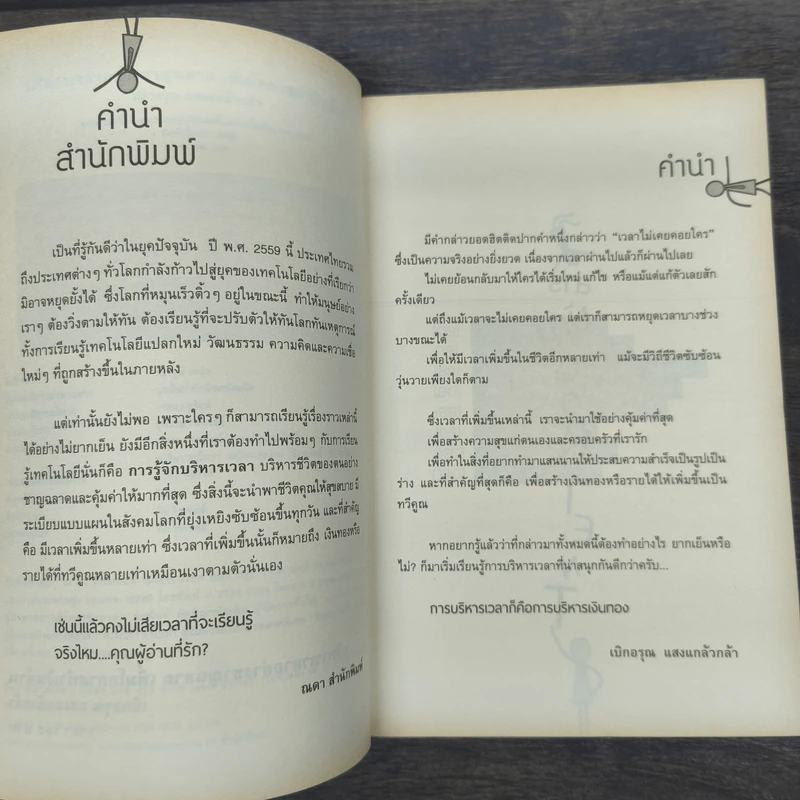 คำนำ
สำนักพิมพ์
เป็นที่รู้กันดีว่าในยุคปัจจุบัน ปี พ.ศ. 2559 นี้ ประเทศไทยรวม
ถึงประเทศต่างๆ ทั่วโลกกำลังก้าวไปสู่ยุคของเทคโนโลยีอย่างที่เรียกว่า
มิอาจหยุดยั้งได้ ซึ่งโลกที่หมุนเร็วติ้วๆ อยู่ในขณะนี้ ทำให้มนุษย์อย่าง
เราๆ ต้องวิ่งตามให้ทัน ต้องเรียนรู้ที่จะปรับตัวให้ทันโลกทันเหตุการณ์
ทั้งการเรียนรู้เทคโนโลยีแปลกใหม่ วัฒนธรรม ความคิดและความเชื่อ
ใหม่ๆ ที่ถูกสร้างขึ้นในภายหลัง
แต่เท่านั้นยังไม่พอ เพราะใครๆ ก็สามารถเรียนรู้เรื่องราวเหล่านี้
ได้อย่างไม่ยากเย็น ยังมีอีกสิ่งหนึ่งที่เราต้องทำไปพร้อมๆ กับการเรียน
รู้เทคโนโลยีนั่นก็คือ การรู้จักบริหารเวลา บริหารชีวิตของตนอย่าง
ชาญฉลาด และคุ้มค่าให้มากที่สุด ซึ่งสิ่งนี้จะนำพาชีวิตคุณให้สุขสบาย มี
ระเบียบแบบแผนในสังคมโลกที่ยุ่งเหยิงซับซ้อนขึ้นทุกวัน และที่สำคัญ
คือ มีเวลาเพิ่มขึ้นหลายเท่า ซึ่งเวลาที่เพิ่มขึ้นนั้นก็หมายถึง เงินทองหรือ
รายได้ที่ทวีคูณหลายเท่าเหมือนเงาตามตัวนั่นเอง
เช่นนี้แล้วคงไม่เสียเวลาที่จะเรียนรู้
จริงไหม....คุณผู้อ่านที่รัก?
ณดา สำนักพิมพ์
คำนำ
มีคำกล่าวยอดฮิตติดปากคำหนึ่งกล่าวว่า “เวลาไม่เคยคอยใคร”
ซึ่งเป็นความจริงอย่างยิ่งยวด เนื่องจากเวลาผ่านไปแล้วก็ผ่านไปเลย
ไม่เคยย้อนกลับมาให้ใครได้เริ่มใหม่ แก้ไข หรือแม้แต่แก้ตัวเลยสัก
ครั้งเดียว
แต่ถึงแม้เวลาจะไม่เคยคอยใคร แต่เราก็สามารถหยุดเวลาบางช่วง
บางขณะได้
เพื่อให้มีเวลาเพิ่มขึ้นในชีวิตอีกหลายเท่า แม้จะมีวิถีชีวิตซับซ้อน
วุ่นวายเพียงใดก็ตาม
ซึ่งเวลาที่เพิ่มขึ้นเหล่านี้ เราจะนำมาใช้อย่างคุ้มค่าที่สุด
เพื่อสร้างความสุขแก่ตนเองและครอบครัวที่เรารัก
เพื่อทำในสิ่งที่อยากทำมาแสนนานให้ประสบความสำเร็จเป็นรูปเป็น
ร่าง และที่สำคัญที่สุดก็คือ เพื่อสร้างเงินทองหรือรายได้ให้เพิ่มขึ้นเป็น
ทวีคูณ
หากอยากรู้แล้วว่าที่กล่าวมาทั้งหมดนี้ต้องทำอย่างไร ยากเย็นหรือ
ไม่? ก็มาเริ่มเรียนรู้การบริหารเวลาที่น่าสนุกกันดีกว่าครับ...
การบริหารเวลาก็คือการบริหารเงินทอง
เบิกอรุณ แสงแกล้วกล้า